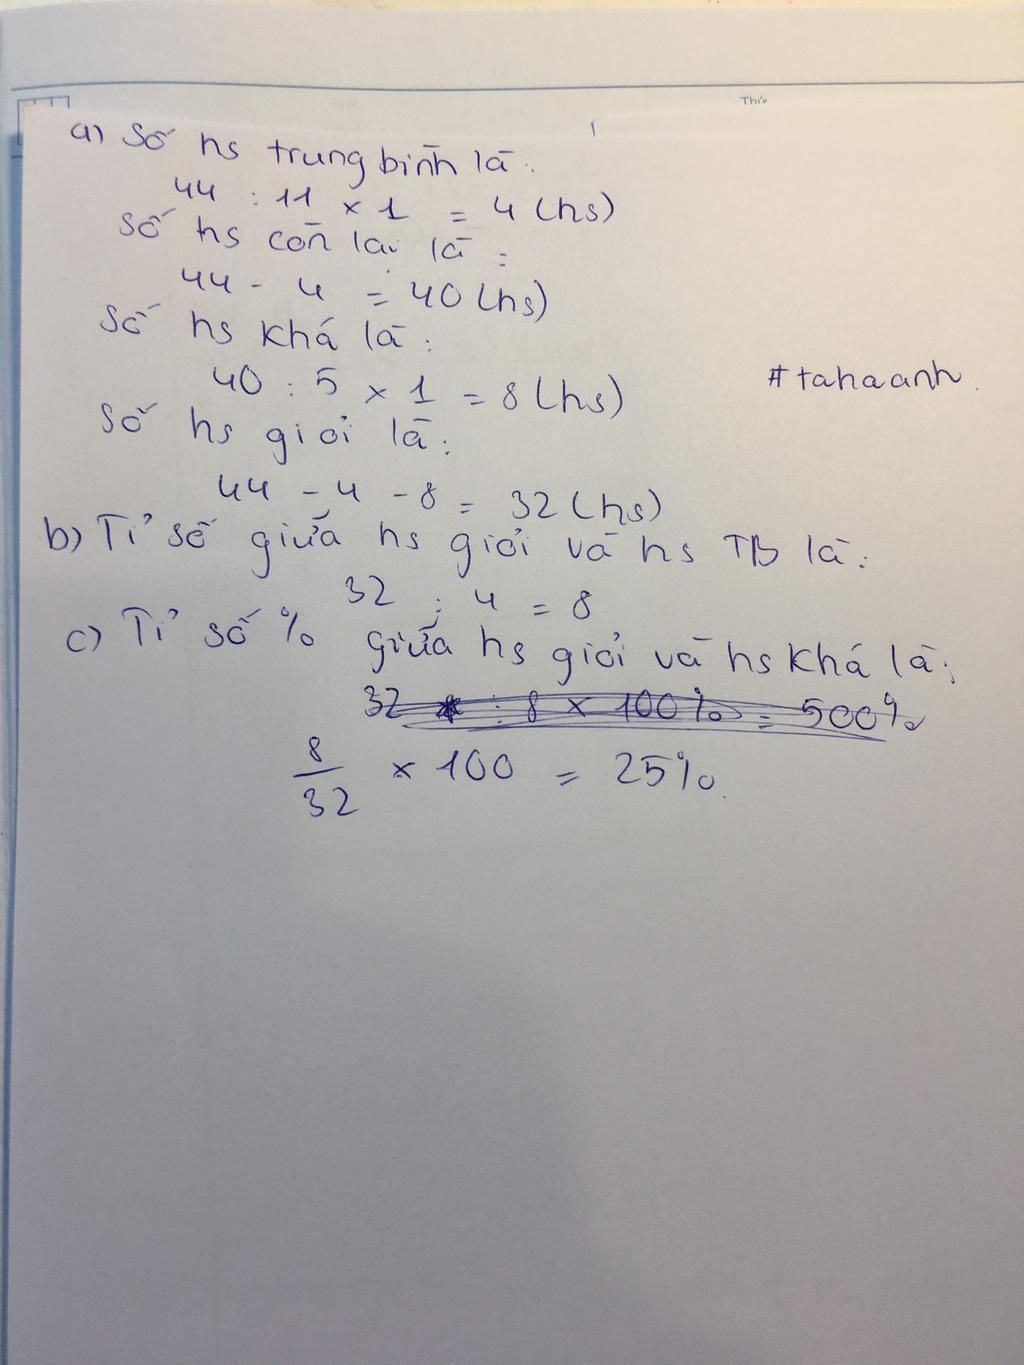 Thứ
a) Số hs trung bình là:
44 : 11 x 1 = 4 (hs)
Số hs còn lại là :
44 - 4 = 40 (hs)
Số hs khá là :
40 : 5 x 1 = 8 (hs)
#tahaanh.
Số hs giỏi là :
44 - 4 - 8 = 32 (hs)
b) Tỉ số giữa hs giỏi và hs TB là :
32 : 4 = 8
c) Tỉ số % giữa hs giỏi và hs khá là :
32 : 8 x 100% = 500%
8/32 x 100 = 25%.